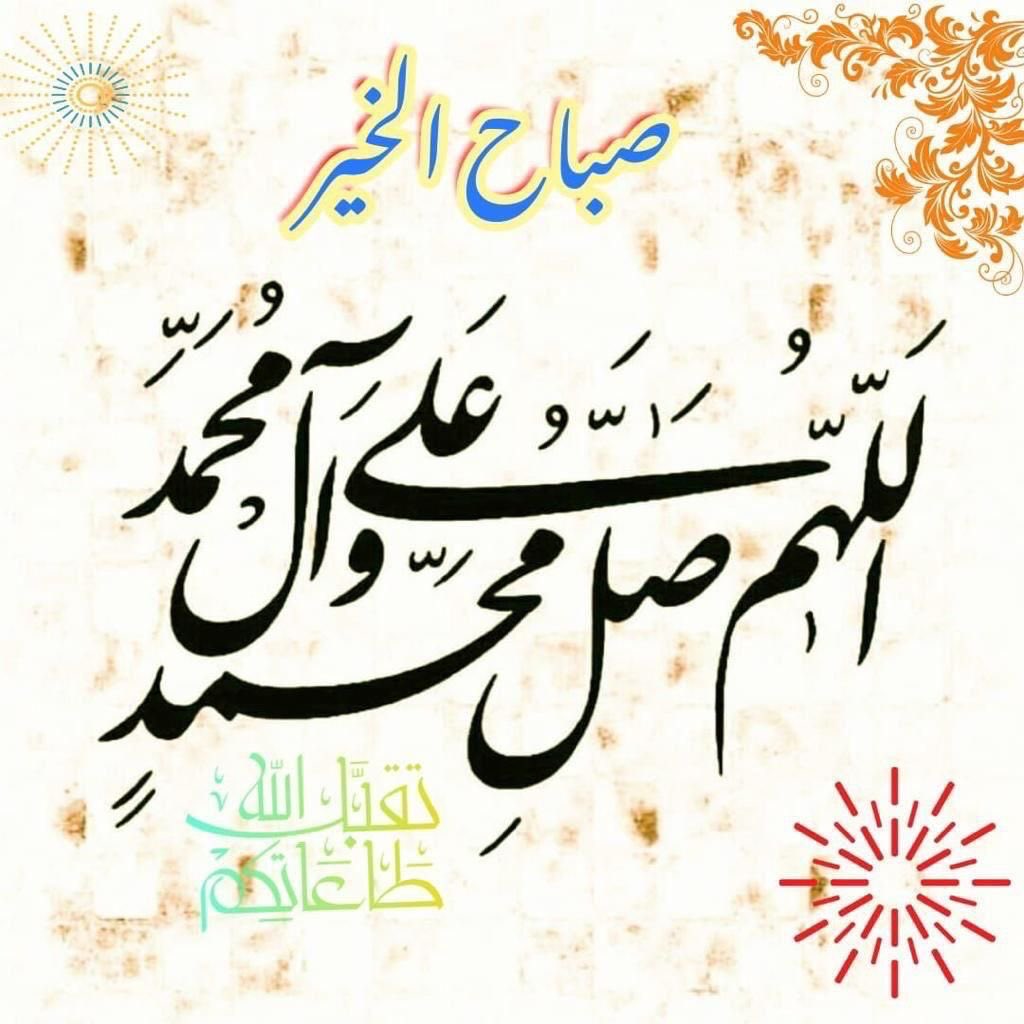 صباح الخير
اَللّٰهُمَّ صَلِّ عَلَى مُحَمَّدٍ وَآلِ مُحَمَّدٍ
تقبَّل الله
طاعاتكم